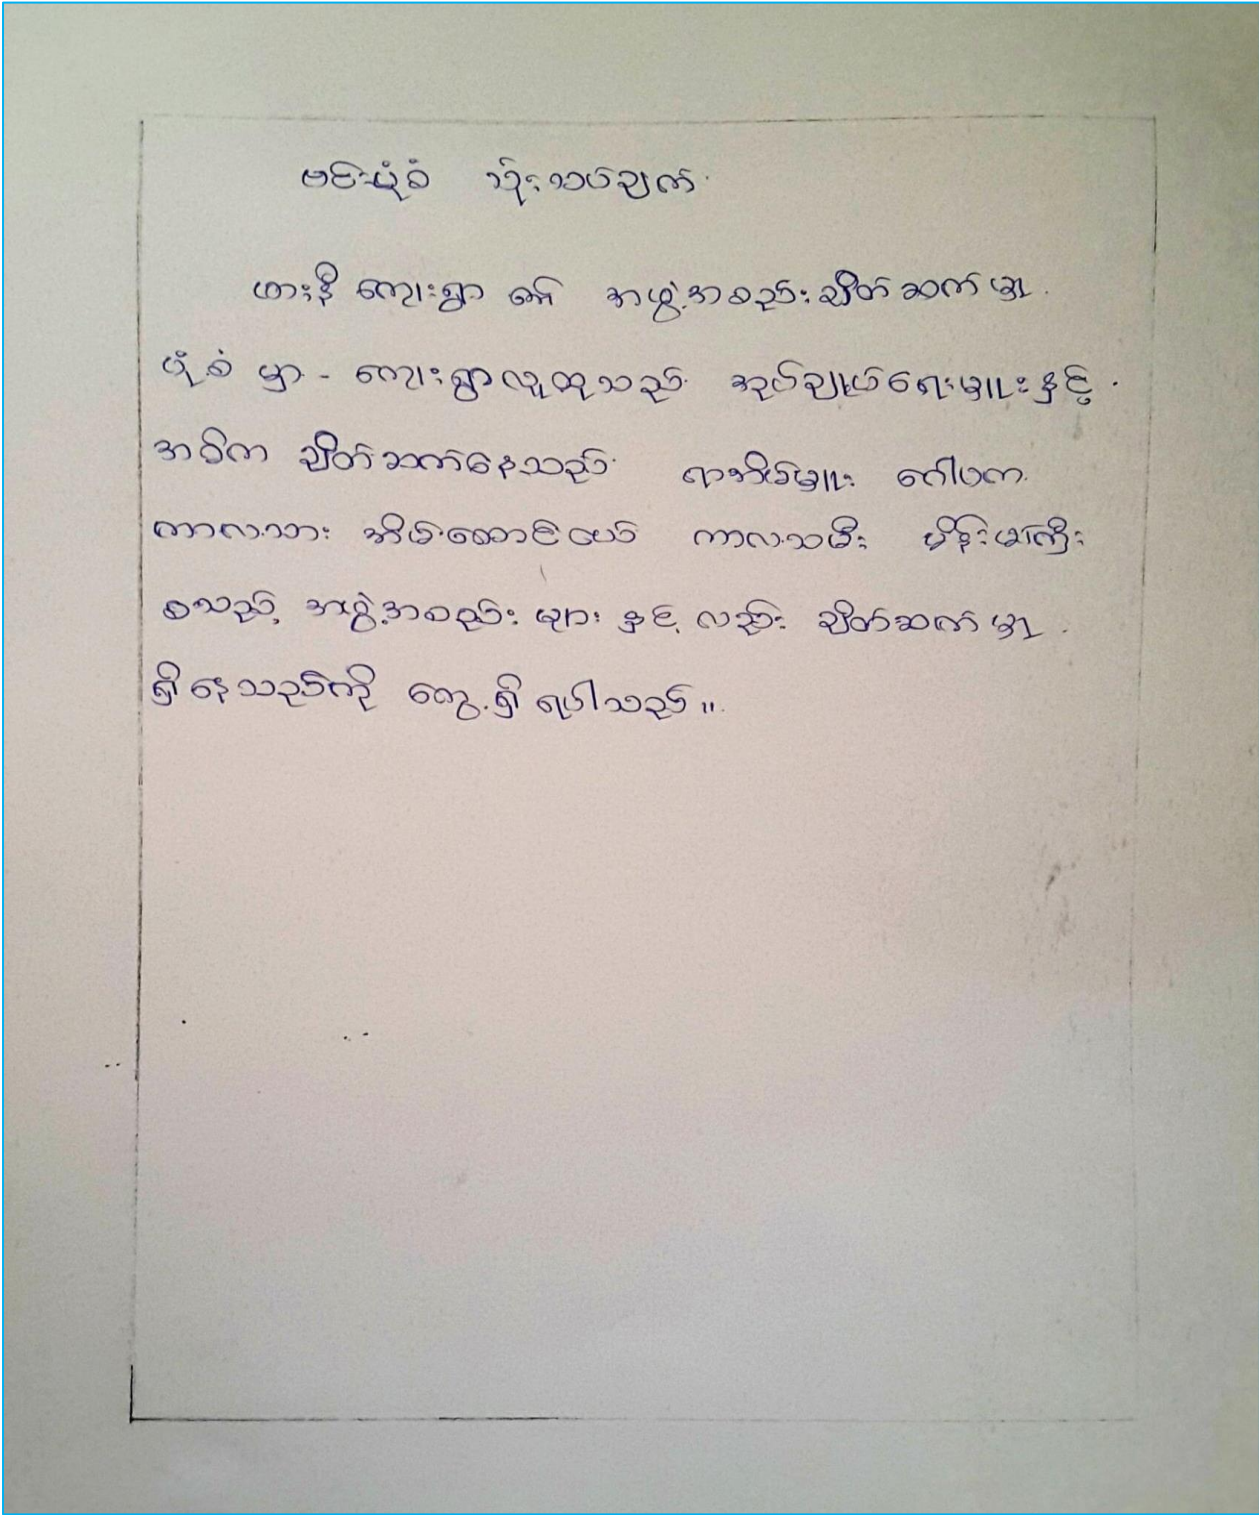 ဗင်းပုံစံ သုံးသပ်ချက်
ဟားနီ ကျေးရွာ ၏ အဖွဲ့အစည်းချိတ်ဆက်မှု
ပုံစံ မှာ - ကျေးရွာလူထုသည် အုပ်ချုပ်ရေးမှူးနှင့်
အဓိက ချိတ်ဆက်နေသည် ရာအိမ်မှူး ဂေါပက
ကာလသား အိမ်ထောင်ပေါ် ကာလသမီး မိန်းမကြီး
စသည့် အဖွဲ့အစည်း များ နှင့် လည်း ချိတ်ဆက်မှု
ရှိနေသည်ကို တွေ့ရှိ ရပါသည်။